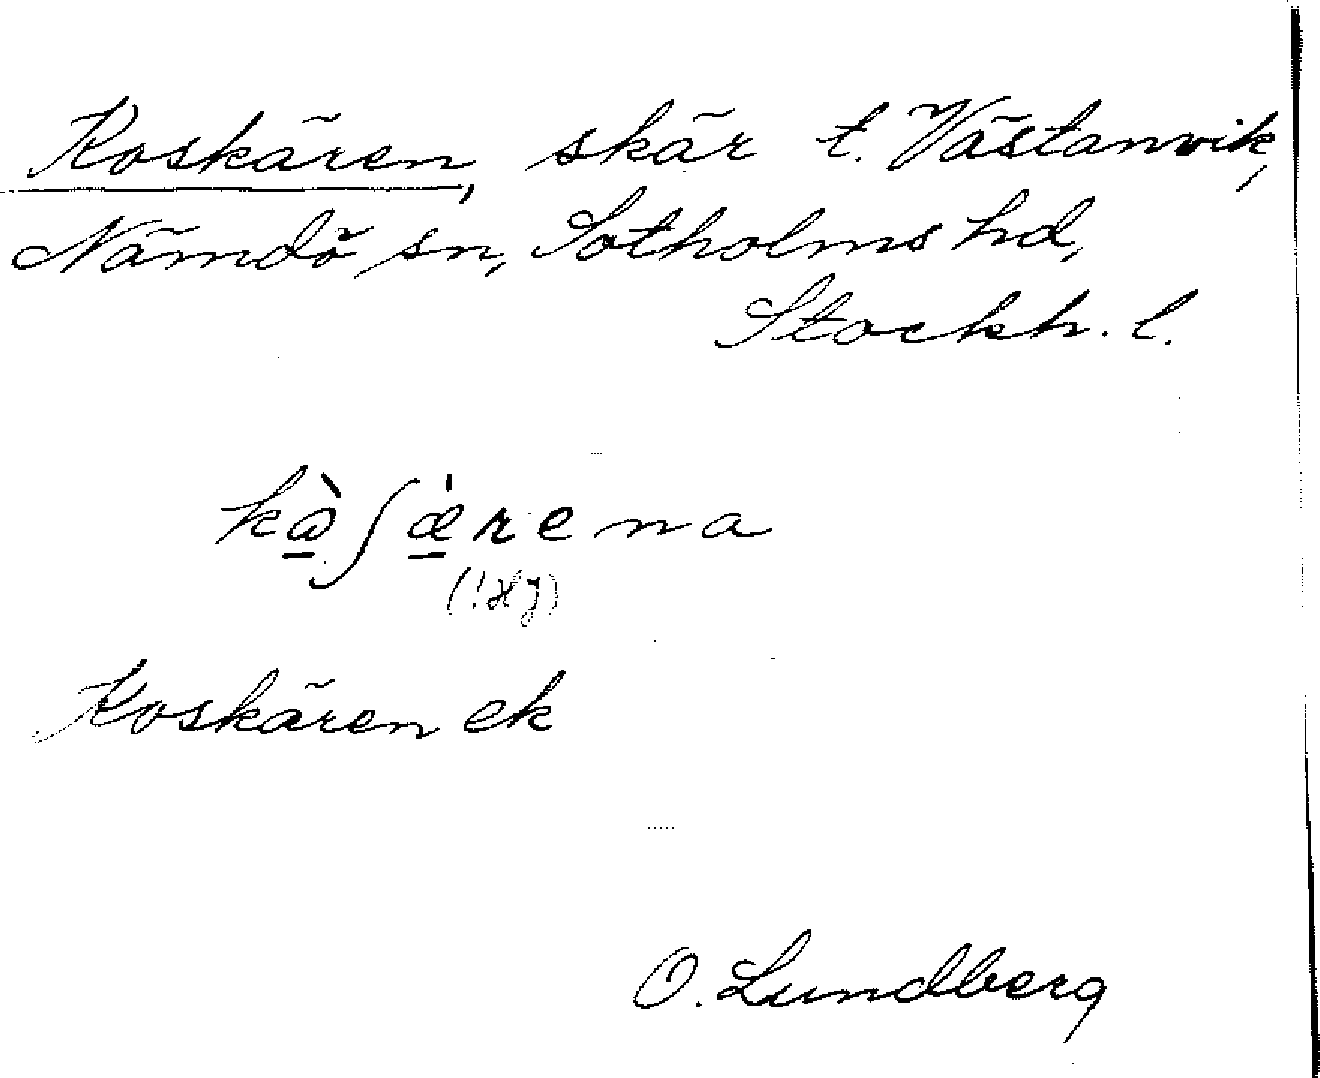 Koskären, skär t. Västanvik,
Nämdö sn, Sotholms hd,
Stockh. l.
kɷ̀ʃæ̀rena
(! Hg)
Koskären ek
O. Lundberg